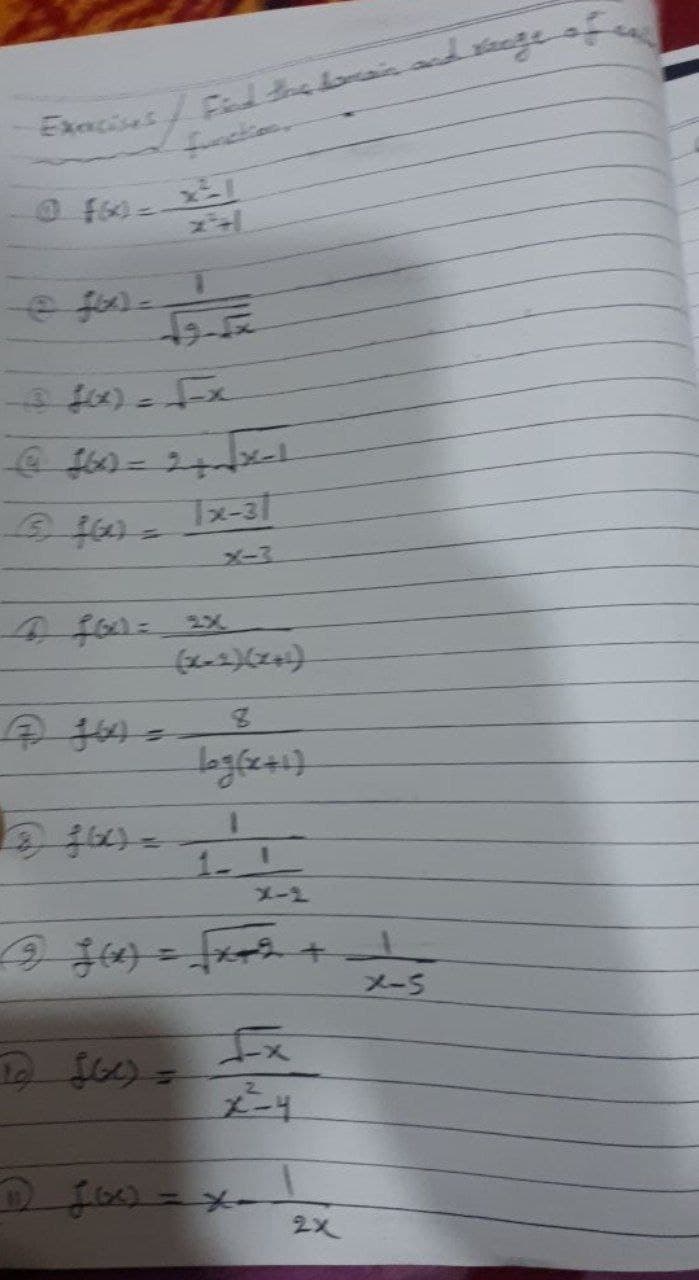 Exercises / Find the domain and range of
function.
① f(x) = (x²-1)/(x²+1)
② f(x) = 1/√(9-√x)
③ f(x) = √-x
④ f(x) = 2+√(x-1)
⑤ f(x) = |x-3|/(x-3)
⑥ f(x) = 2x/((x-2)(x+1))
⑦ f(x) = 8/log(x+1)
⑧ f(x) = 1/(1-1/(x-2))
⑨ f(x) = √(x+2) + 1/(x-5)
⑩ f(x) = √-x/(x²-4)
⑪ f(x) = x-1/2x